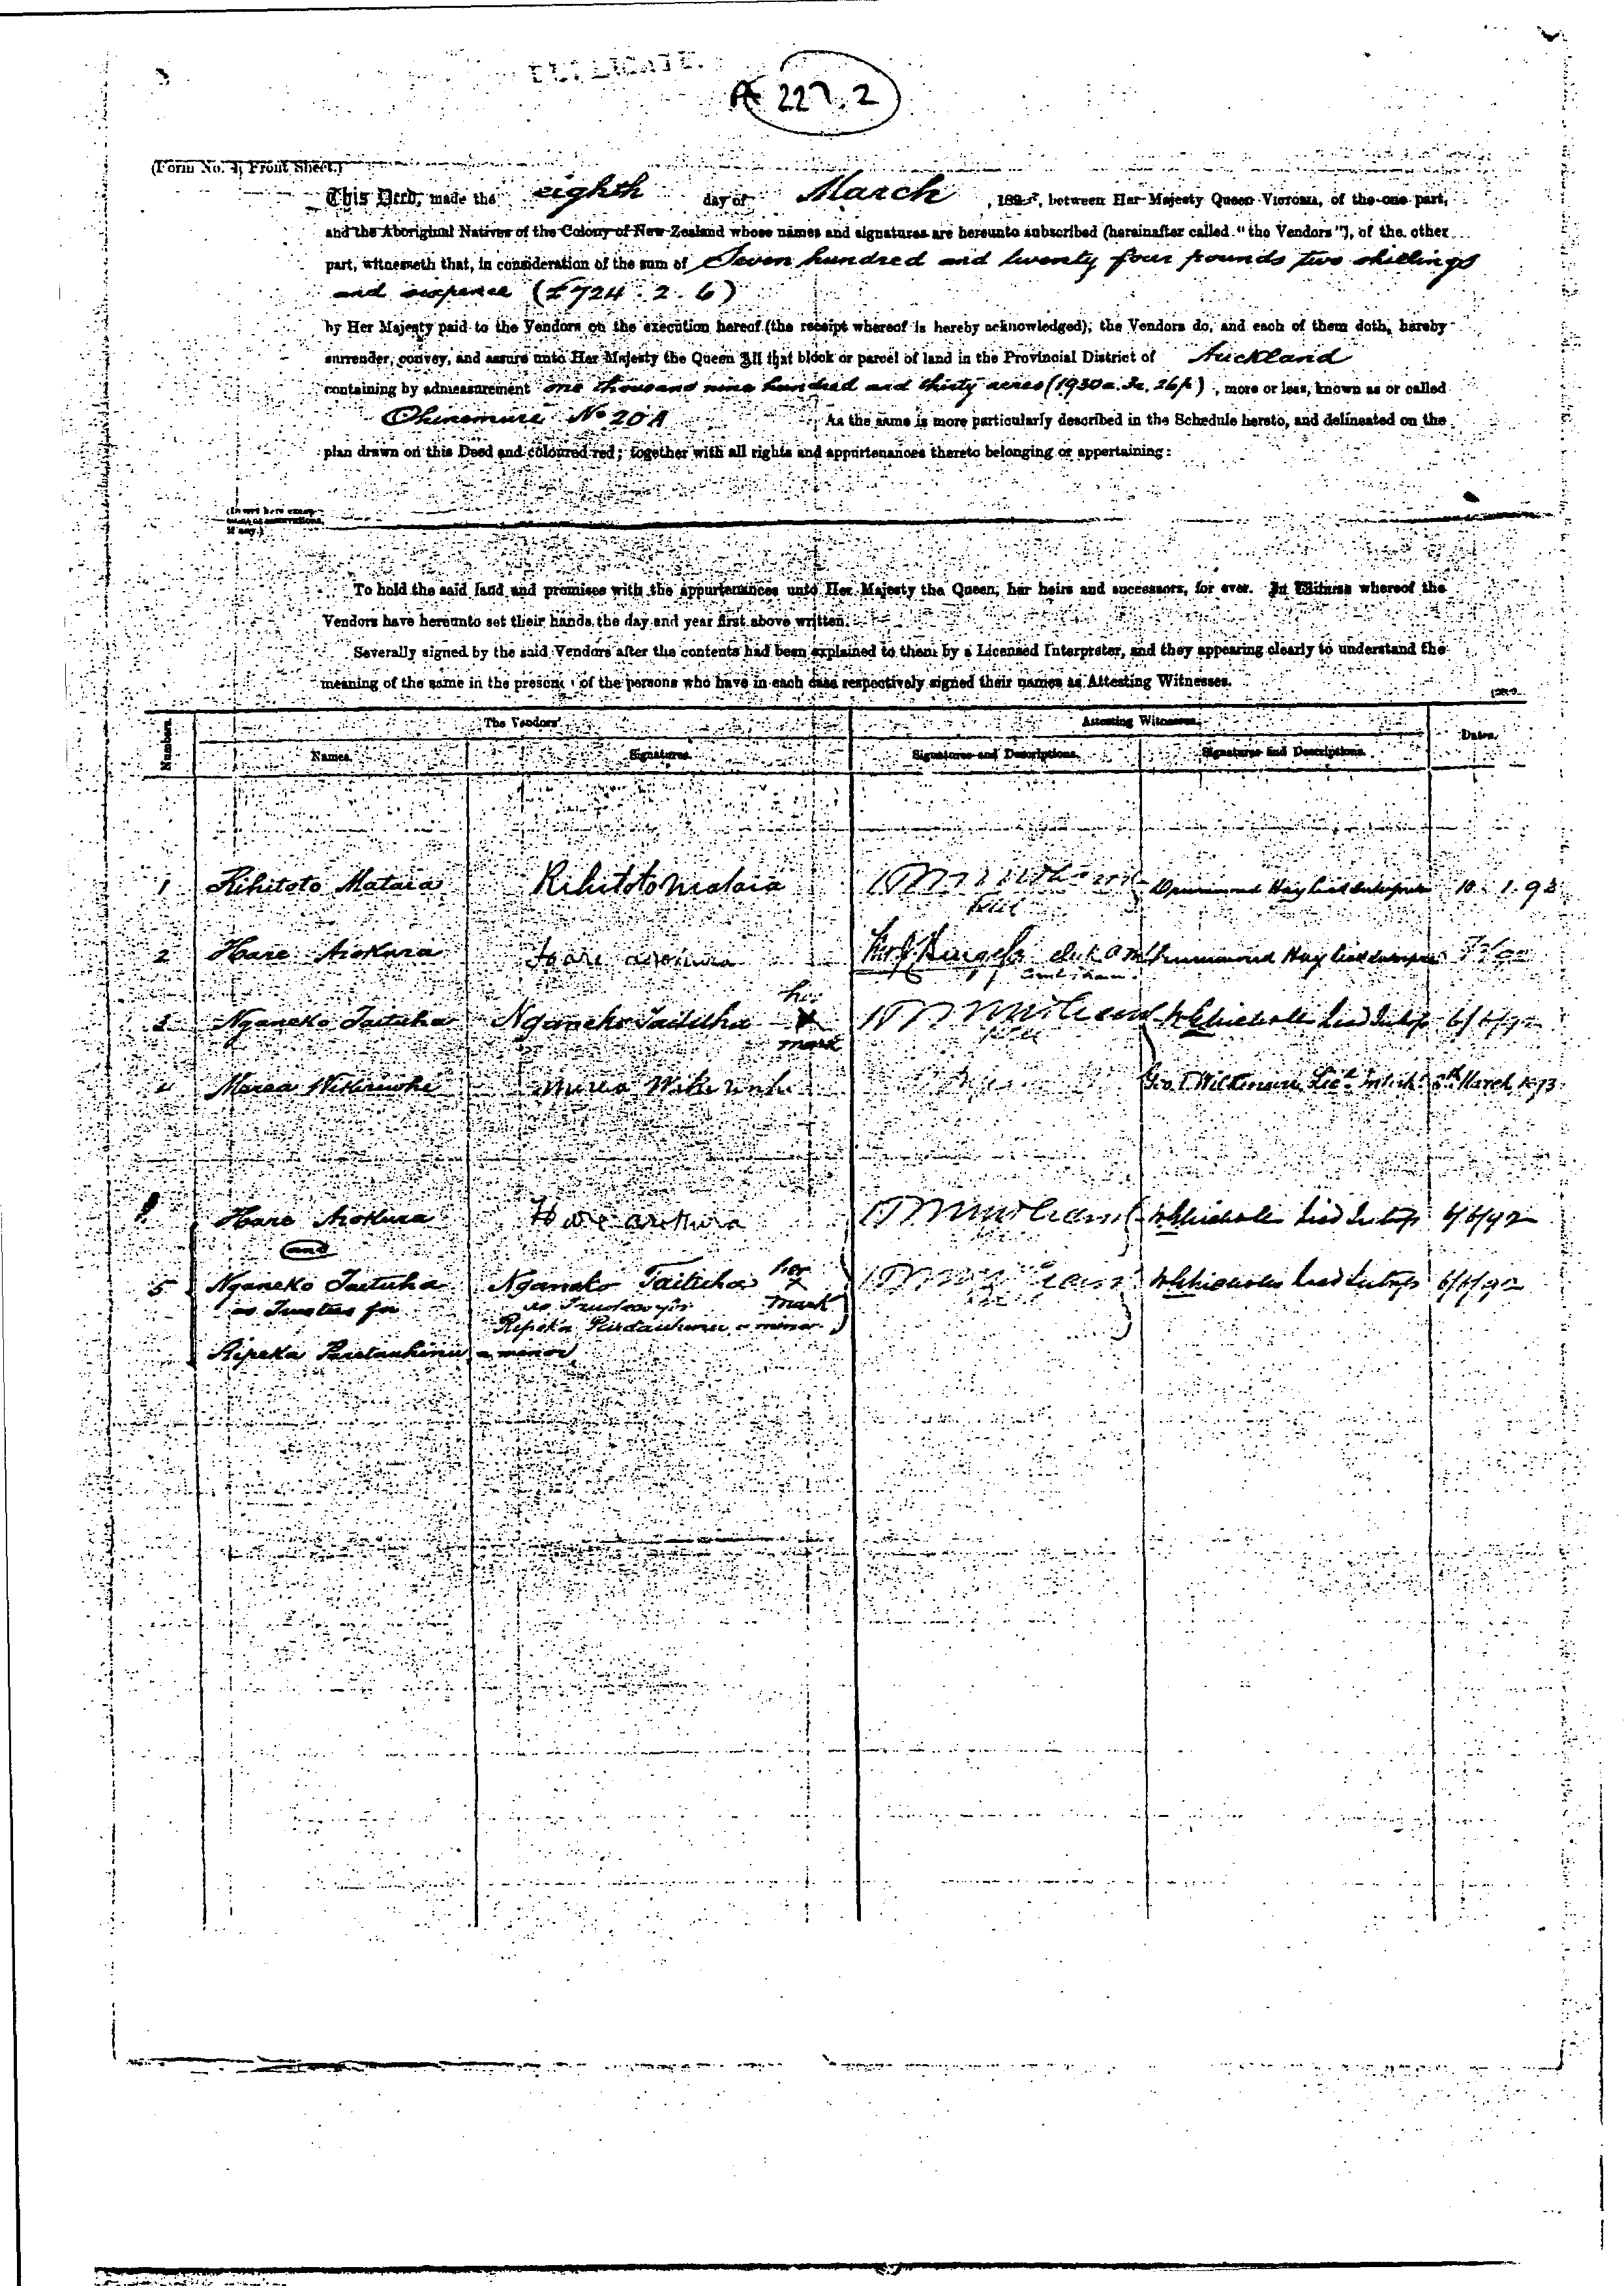 DUPLICATE.
227.2
(Form No. 4, Front Sheet.)
This Deed, made the eighth day of March , 189 , between Her Majesty Queen VICTORIA, of the one part,
and the Aboriginal Natives of the Colony of New Zealand whose names and signatures are hereunto subscribed (hereinafter called "the Vendors"), of the other
part, witnesseth that, in consideration of the sum of Seven hundred and twenty four pounds two shillings
and sixpence (£724.2.6)
by Her Majesty paid to the Vendors on the execution hereof (the receipt whereof is hereby acknowledged), the Vendors do, and each of them doth, hereby
surrender, convey, and assure unto Her Majesty the Queen All that block or parcel of land in the Provincial District of Auckland
containing by admeasurement one thousand nine hundred and thirty acres (1930a. 3r. 26p) , more or less, known as or called
Ohinemuri No 20A As the same is more particularly described in the Schedule hereto, and delineated on the
plan drawn on this Deed and coloured red; together with all rights and appurtenances thereto belonging or appertaining:
To hold the said land and premises with the appurtenances unto Her Majesty the Queen, her heirs and successors, for ever. In Witness whereof the
Vendors have hereunto set their hands the day and year first above written.
Severally signed by the said Vendors after the contents had been explained to them by a Licensed Interpreter, and they appearing clearly to understand the
meaning of the same in the presence of the persons who have in each case respectively signed their names as Attesting Witnesses.
Numbers. The Vendors. Attesting Witnesses. Dates.
Names. Signatures. Signatures and Descriptions. Signatures and Descriptions.
1 Rihitoto Mataia Rihitoto Mataia Drummond Hay Licd Interpreter 10.1.93
2 Hare Arokura Hare arokura Drummond Hay Licd Interpreter
her
3 Nganeko Taituha Nganeko Taituha x Licd Interp 6/6/92
mark
4 Marea Wikiriwhi Marea Wikiriwhi Geo. T. Wilkinson Licd Interpr 8th March 1893
Hare Arokura Hare arokura Licd Interp 6/6/92
and
5 Nganeko Taituha Nganeko Taituha her x Licd Interp 6/6/92
as Trustees for as Trustees for mark
Ripeka a minor
Ripeka a minor